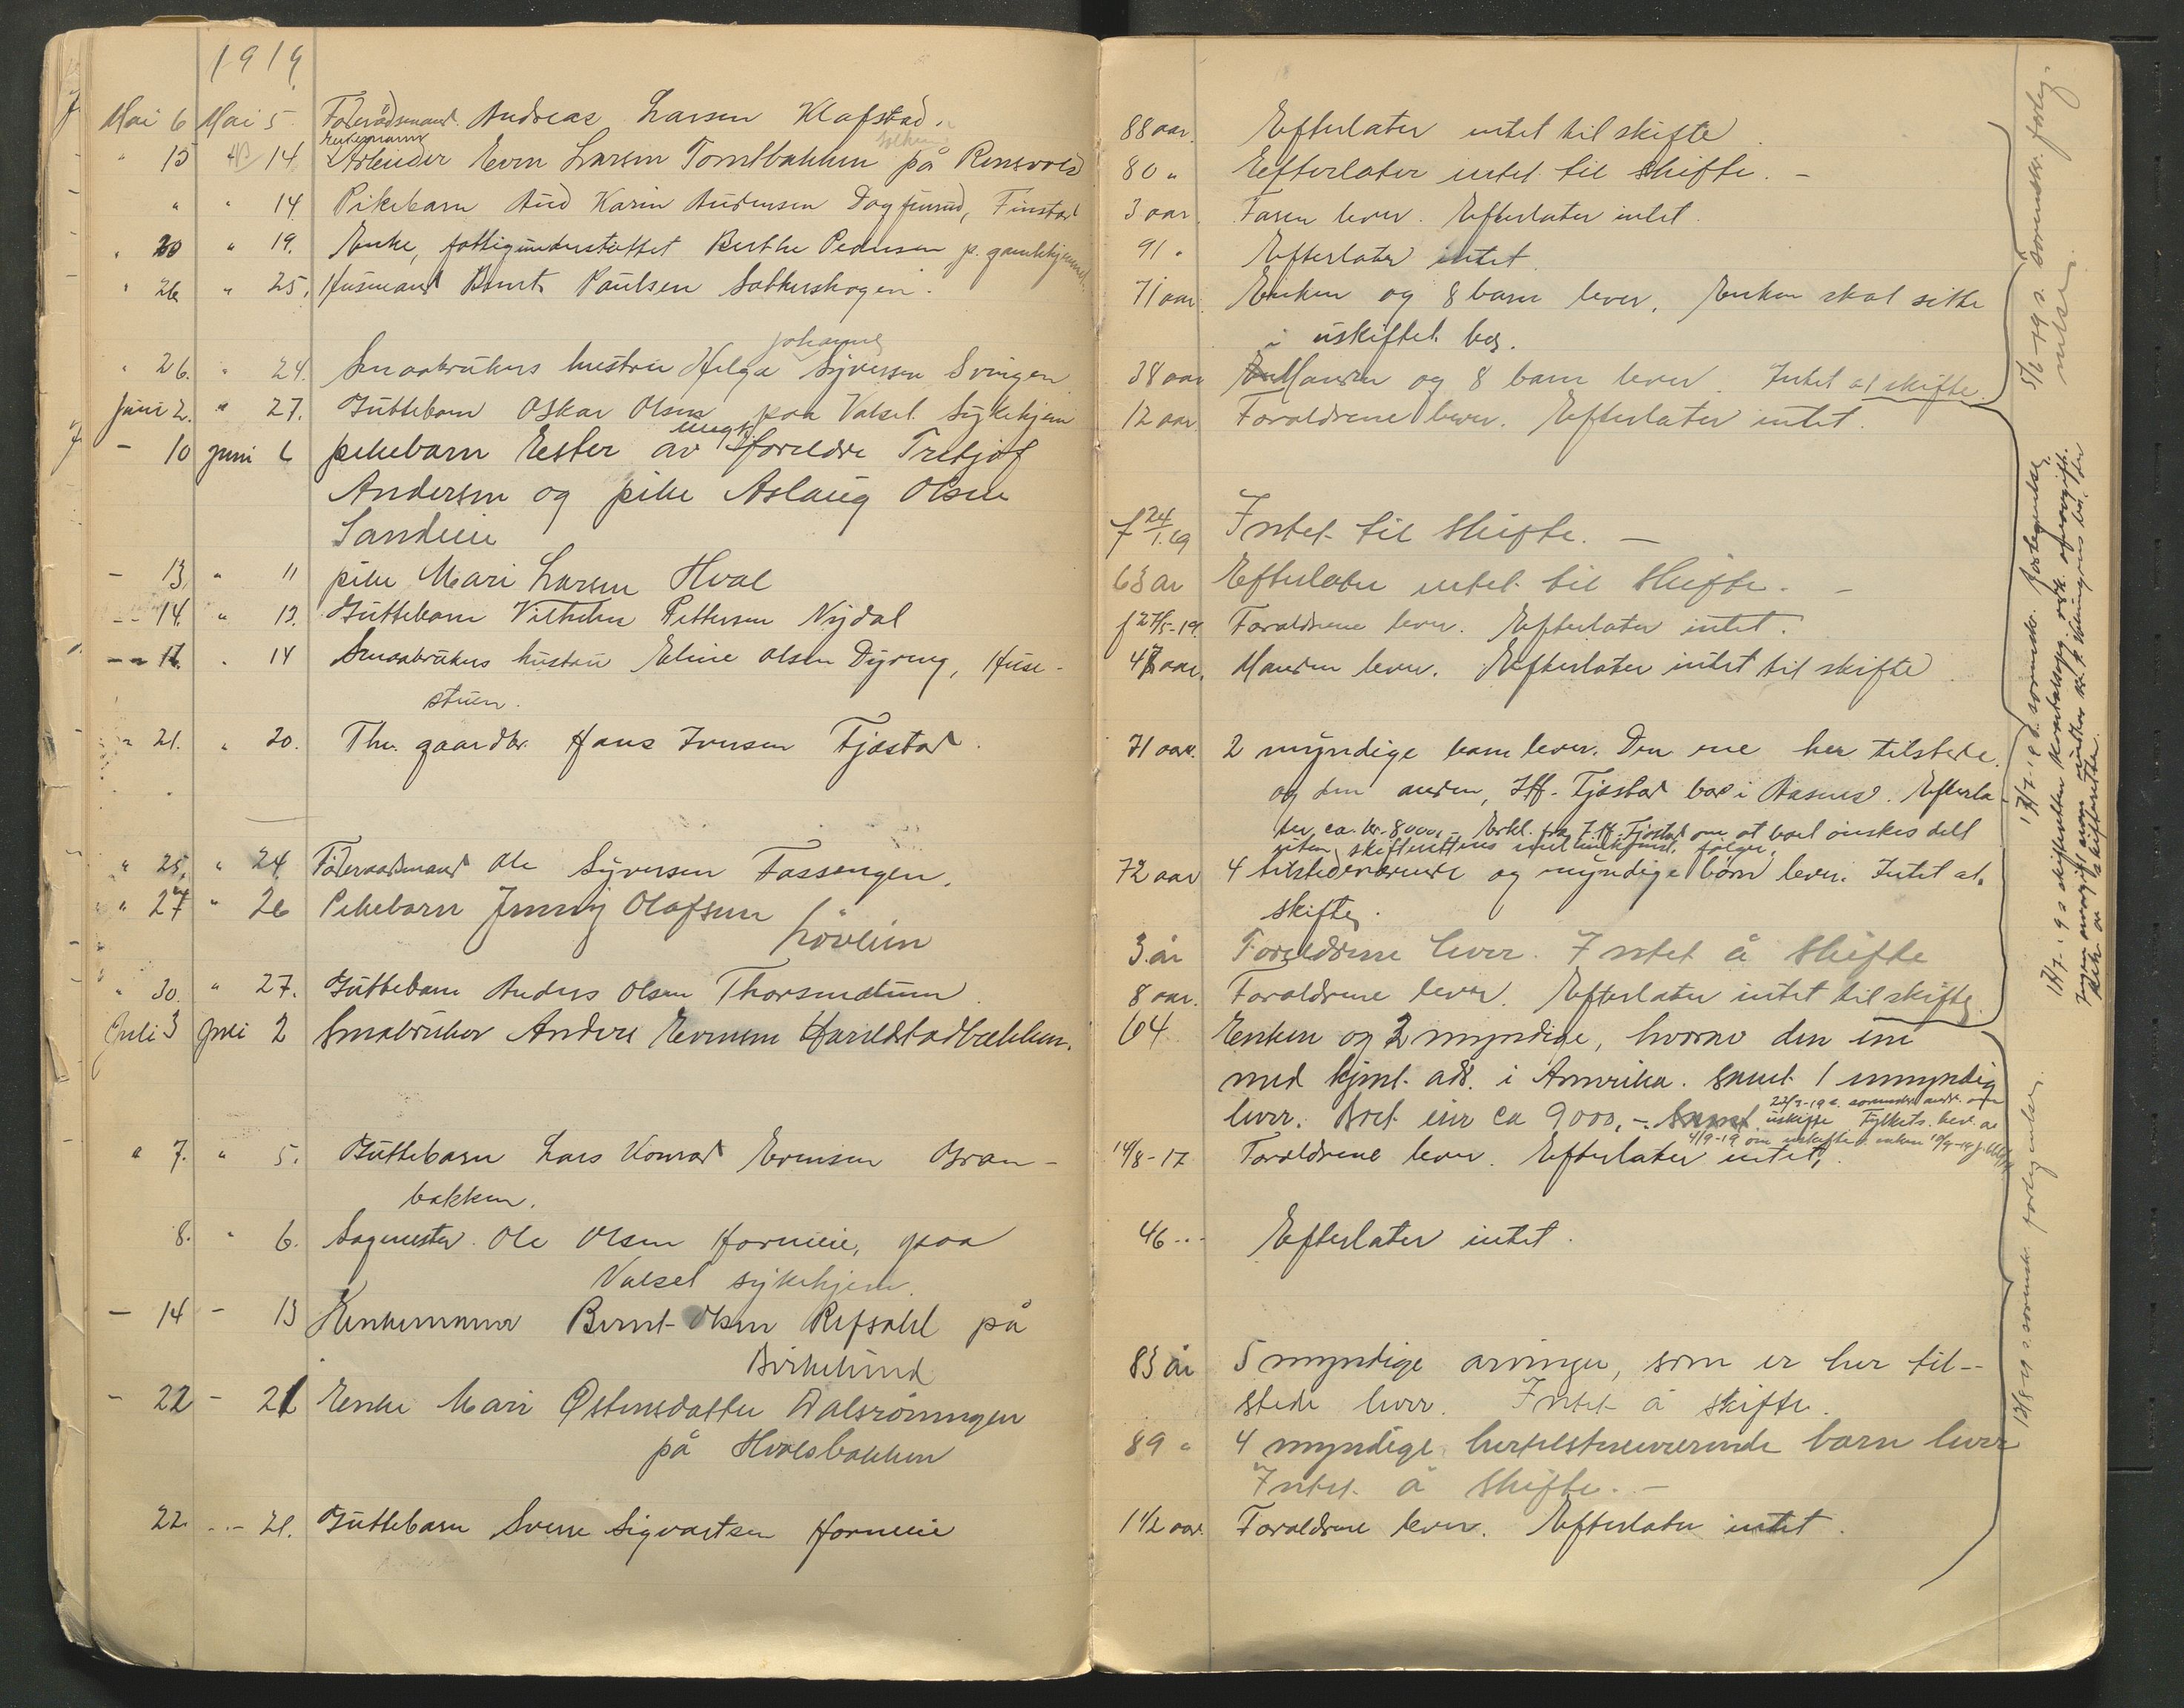 1919
Mai 6 Mai 5 Föderådsmand Andreas Larsen Klafstad.
Enkemann
" 15 " 14. Arbeider Even Larsen Tomtbakken på Rensvold
" " 14 Pikebarn Aud Karin Audensen Dagfinrud, Finstad
" 20 " 19. Enke, fattigunderstøttet Berthe Pedersen p. gamlehjemmet.
" 26 " 25. Husmand Bernt Paulsen Satherskogen.
Johanne
" 26. " 24. Smaabrukers hustru Helga Syversen Svingen
Juni 2. " 27. Guttebarn Oskar Olsen paa Valset Sykehjem
ungt
- 10 juni 6 pikebarn Ester av foreldre Tretjof
Andersen og pike Aslaug Olsen
Sandeie
- 13 " 11 pike Mari Larsen Hval
- 14. " 13. Guttebarn Vilhelm Pettersen Nydal
- 16. " 14 Smaabrukers hustru Eline Olsen Dyreng, Huse-
stuen.
" 21. " 20. Fhv. gaardbr. Hans Iversen Fjæstad.
" 25. " 24 Föderaadsmand Ole Syversen Fossengen.
" 27 " 26 Pikebarn Jenny Olafsen
Lövlien
" 30. " 27. Guttebarn Anders Olsen Thorsmdtuen.
Juli 3 juli 2 Småbruker Anders Evensen Haraldstadbakken.
" 7. " 5. Guttebarn Lars Konrad Evensen Gran-
bakken.
8. " 6. Sagmester Ole Olsen Horneie, paa
Valset sykehjem.
- 14 - 13 Kirkemann Bernt Olsen Refsahl på
Birkelund
- 22 - 21 Enke Mari Østensdatter Dalsröningen
på Hvalsbakken
22. - 21. Guttebarn Sverre Sigvartsen Horneie
88 aar. Efterlater intet til skifte.
80 " Efterlater intet til skifte. -
3 aar. Faren lever. Efterlater intet.
91 " Efterlater intet.
71 aar. Enken og 8 barn lever. Enken skal sitte
i uskiftet bo.
38 aar Manden og 8 barn lever. Intet at skifte.
12 aar. Forældrene lever. Efterlater intet.
f 24/1.19 Intet til skifte. -
63 år Efterlater intet til skifte. -
f 27/5-19. Forældrene lever. Efterlater intet.
48 aar. Manden lever. Efterlater intet til skifte.
71 aar. 2 myndige barn lever. Den ene her tilstede.
og den anden, Hf. Fjæstad bor i Aasnes. Efterla-
ter ca. kr. 8000,- Erkl. fra Hf. Fjæstad om at boet önskes delt
uten skifterettens mellemkomst følger.
72 aar 4 tilstedeværende og myndige børn lever. Intet at
skifte.
3 år Foreldrene lever. Intet å skifte
8 aar. Forældrene lever. Efterlater intet til skifte.
64 Enken og 2 myndige, hvorav den ene
med kjent adr. i Amerika. samt 1 umyndig
lever. Boet eier ca 9000,-.
uskifte Fylkets bev. av
4/9-19 om uskifte
14/8-17 Forældrene lever. Efterlater intet.
46 " Efterlater intet.
83 år 5 myndige arvinger, som er her til-
stede lever. Intet å skifte.
89 " 4 myndige hertilstedeværende barn lever
Intet å skifte. -
1 1/2 aar. Forældrene lever. Efterlater intet.
5/6-19 s. sorenskr. forteg-
nelse.
s. sorenskr. fortegnelse.
13/8-19 s. sorenskr. fortegnelse.